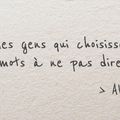 es gens qui choisiss
mots à ne pas dire
> Al